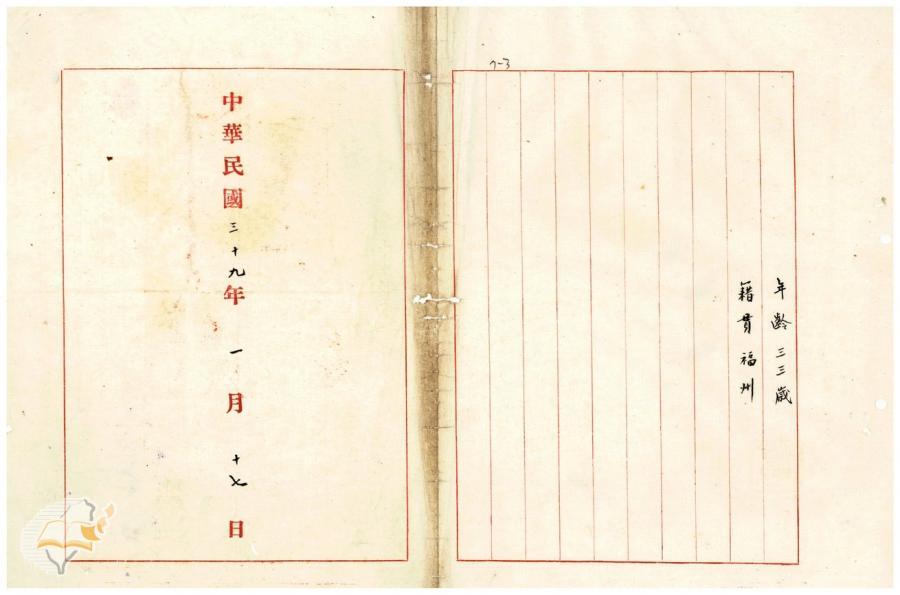 年齡三三歲
籍貫福州
中華民國三十九年一月十七日